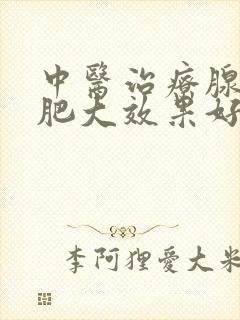 中醫治療腺
肥大效果好
李阿狸愛大米